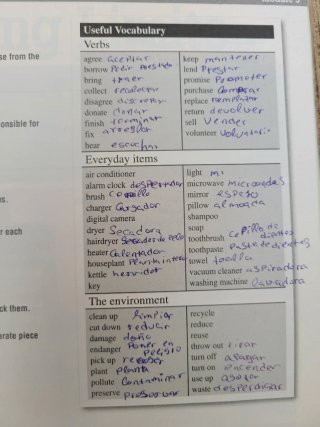 Module 5
Useful Vocabulary
Verbs
agree aceptar
borrow Pedir Prestado
bring traer
collect recolectar
disagree discrepar
donate donar
finish terminar
fix arreglar
hear escuchar
keep mantener
lend Prestar
promise Prometer
purchase Comprar
replace reemplazar
return devolver
sell Vender
volunteer
Everyday items
air conditioner
alarm clock despertador
brush cepillo
charger Cargador
digital camera
dryer Secadora
hairdryer Secador de pelo
heater Calentador
houseplant Planta
kettle hervidor
key
light
microwave microondas
mirror espejo
pillow almoada
shampoo
soap
toothbrush cepillo de dientes
toothpaste Pasta de dientes
towel toalla
vacuum cleaner aspiradora
washing machine lavadora
The environment
clean up limpiar
cut down reducir
damage daño
endanger Poner en Peligro
pick up recoger
plant planta
pollute Contaminar
preserve preservar
recycle
reduce
reuse
throw out tirar
turn off apagar
turn on encender
use up agotar
waste desperdiciar
se from the
onsible for
us.
r each
ck them.
erate piece